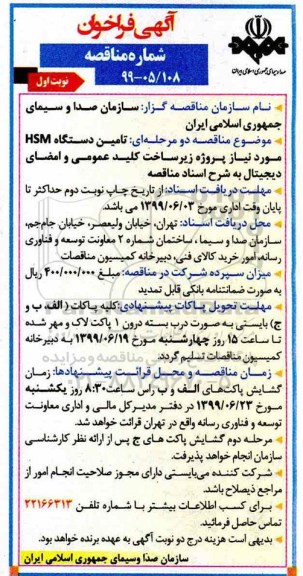 آگهی فراخوان
شماره مناقصه
۹۹-۰۵/۱۰۸
نوبت اول
صدا و سیمای جمهوری اسلامی ایران
نام سازمان مناقصه گزار: سازمان صدا و سیمای
جمهوری اسلامی ایران
موضوع مناقصه دو مرحله‌ای: تامین دستگاه HSM
مورد نیاز پروژه زیرساخت کلید عمومی و امضای
دیجیتال به شرح اسناد مناقصه
مهلت دریافت اسناد: از تاریخ چاپ نوبت دوم حداکثر تا
پایان وقت اداری مورخ ۱۳۹۹/۰۶/۰۳ می باشد
محل دریافت اسناد: تهران، خیابان ولیعصر، خیابان جام‌جم،
سازمان صدا و سیما، ساختمان شماره ۲ معاونت توسعه و فناوری
رسانه، امور خرید کالای فنی، دبیرخانه کمیسیون مناقصات
میزان سپرده شرکت در مناقصه: مبلغ ۴۰۰/۰۰۰/۰۰۰ ریال
به صورت ضمانتنامه بانکی قابل تمدید
مهلت تحویل پاکات پیشنهادی: کلیه پاکات (الف ب و
ج) بایستی به صورت درب بسته درون ۱ پاکت لاک و مهر شده
تا ساعت ۱۵ روز چهارشنبه مورخ ۱۳۹۹/۰۶/۱۹ به دبیرخانه
کمیسیون مناقصات تسلیم گردد.
زمان مناقصه و محل قرائت پیشنهادها: زمان
گشایش پاکت‌های الف و ب راس ساعت ۸:۳۰ روز یکشنبه
مورخ ۱۳۹۹/۰۶/۲۳ در دفتر مدیرکل مالی و اداری معاونت
توسعه و فناوری رسانه واقع در تهران قرائت خواهد شد.
مرحله دوم گشایش پاکت های ج پس از ارائه نظر کارشناسی
سازمان انجام خواهد پذیرفت.
شرکت کننده می‌بایستی دارای مجوز صلاحیت انجام امور از
مراجع ذیصلاح باشد.
برای کسب اطلاعات بیشتر با شماره تلفن ۲۲۱۶۶۳۱۳
تماس حاصل فرمائید.
بدیهی است هزینه درج دو نوبت آگهی به عهده برنده خواهد بود.
سازمان صدا وسیمای جمهوری اسلامی ایران